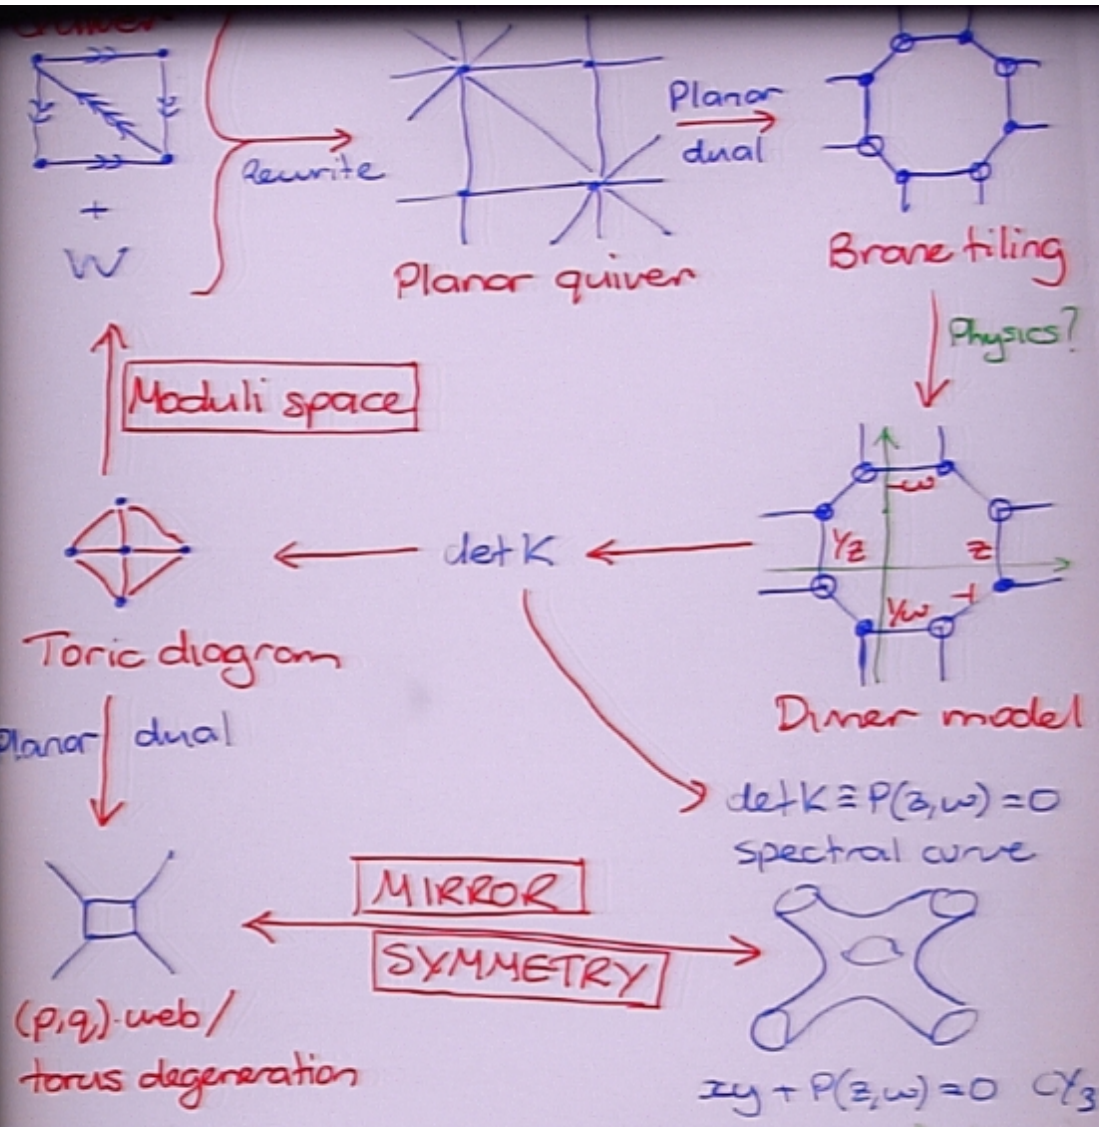 Quiver
+
W
Rewrite
Planar quiver
Planar
dual
Brane tiling
Physics?
Moduli space
Toric diagram
det K
-w
1/z
z
-1
1/w
Dimer model
Planar dual
det K ≡ P(z,w) = 0
spectral curve
MIRROR
SYMMETRY
(p,q)-web/
torus degeneration
xy + P(z,w) = 0 CY3